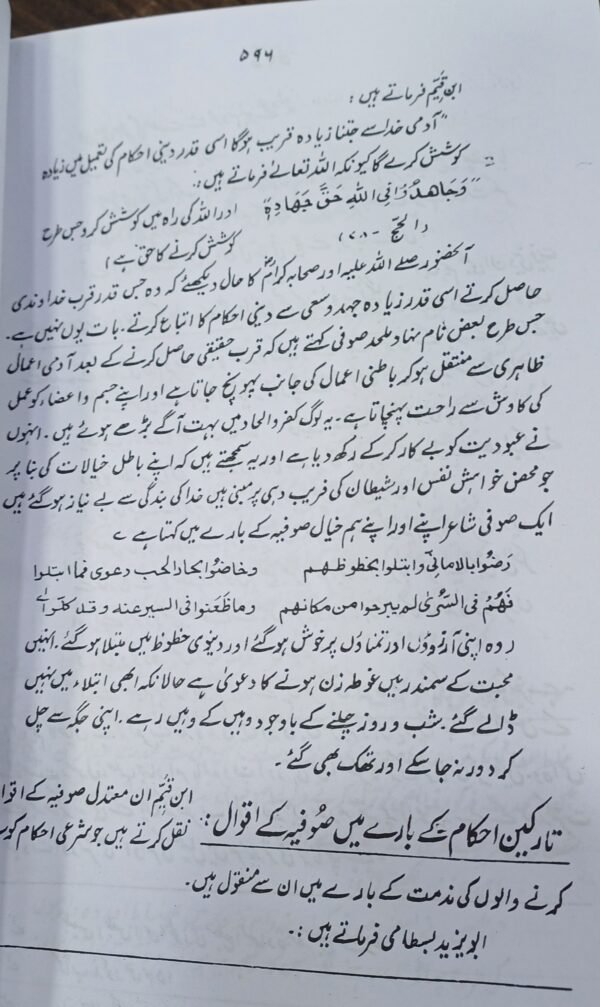 ۵۹۶
ابن قیّم فرماتے ہیں :
"آدمی خدا سے جتنا زیادہ قریب ہوگا اسی قدر دینی احکام کی تعمیل میں زیادہ
کوشش کرے گا کیونکہ اللہ تعالےٰ فرماتے ہیں :۔
"وَجَاهِدُوْا فِی اللهِ حَقَّ جِهَادِهٖ اور اللہ کی راہ میں کوشش کرو جس طرح
(الحج - ۷۸) کوشش کرنے کا حق ہے)
آنحضور صلے اللہ علیہ اور صحابہ کرامؓ کا حال دیکھئے کہ وہ جس قدر قرب خداوندی
حاصل کرتے اسی قدر زیادہ جہد وسعی سے دینی احکام کا اتباع کرتے۔ بات یوں نہیں ہے۔
جس طرح بعض نام نہاد ملحد صوفی کہتے ہیں کہ قرب حقیقی حاصل کرنے کے بعد آدمی اعمال
ظاہری سے منتقل ہو کر باطنی اعمال کی جانب پہونچ جاتا ہے اور اپنے جسم و اعضاء کو عمل
کی کاوش سے راحت پہنچاتا ہے۔ یہ لوگ کفر والحاد میں بہت آگے بڑھے ہوئے ہیں۔ انہوں
نے عبودیت کو بے کار کرکے رکھ دیا ہے اور یہ سمجھتے ہیں کہ اپنے باطل خیالات کی بنا پر
جو محض خواہش نفس اور شیطان کی فریب دہی پر مبنی ہیں خدا کی بندگی سے بے نیاز ہوگئے ہیں
ایک صوفی شاعر اپنے اور اپنے ہم خیال صوفیہ کے بارے میں کہتا ہے ؎
رَضُوا بالامانی وابتلوا بحظوظهم وخاضوا بحار الحب دعوی فما ابتلوا
فَهُمْ فی السُّرٰی لم یبرحوا من مکانهم وما ظَعَنوا فی السیر عنه وقد کلّوا
(وہ اپنی آرزوؤں اور تمناؤں پر خوش ہوگئے اور دنیوی حظوظ میں مبتلا ہوگئے۔ انہیں
محبت کے سمندر میں غوطہ زن ہونے کا دعویٰ ہے حالانکہ ابھی ابتلاء میں نہیں
ڈالے گئے۔ شب و روز چلنے کے باوجود وہیں کے وہیں رہے۔ اپنی جگہ سے چل
کر دور نہ جاسکے اور تھک بھی گئے۔
تارکین احکام کے بارے میں صُوفیہ کے اقوال: ابن قیّم ان معتدل صوفیہ کے
نقل کرتے ہیں جو شرعی احکام
کرنے والوں کی مذمت کے بارے میں ان سے منقول ہیں۔
ابو یزید بسطامی فرماتے ہیں :۔